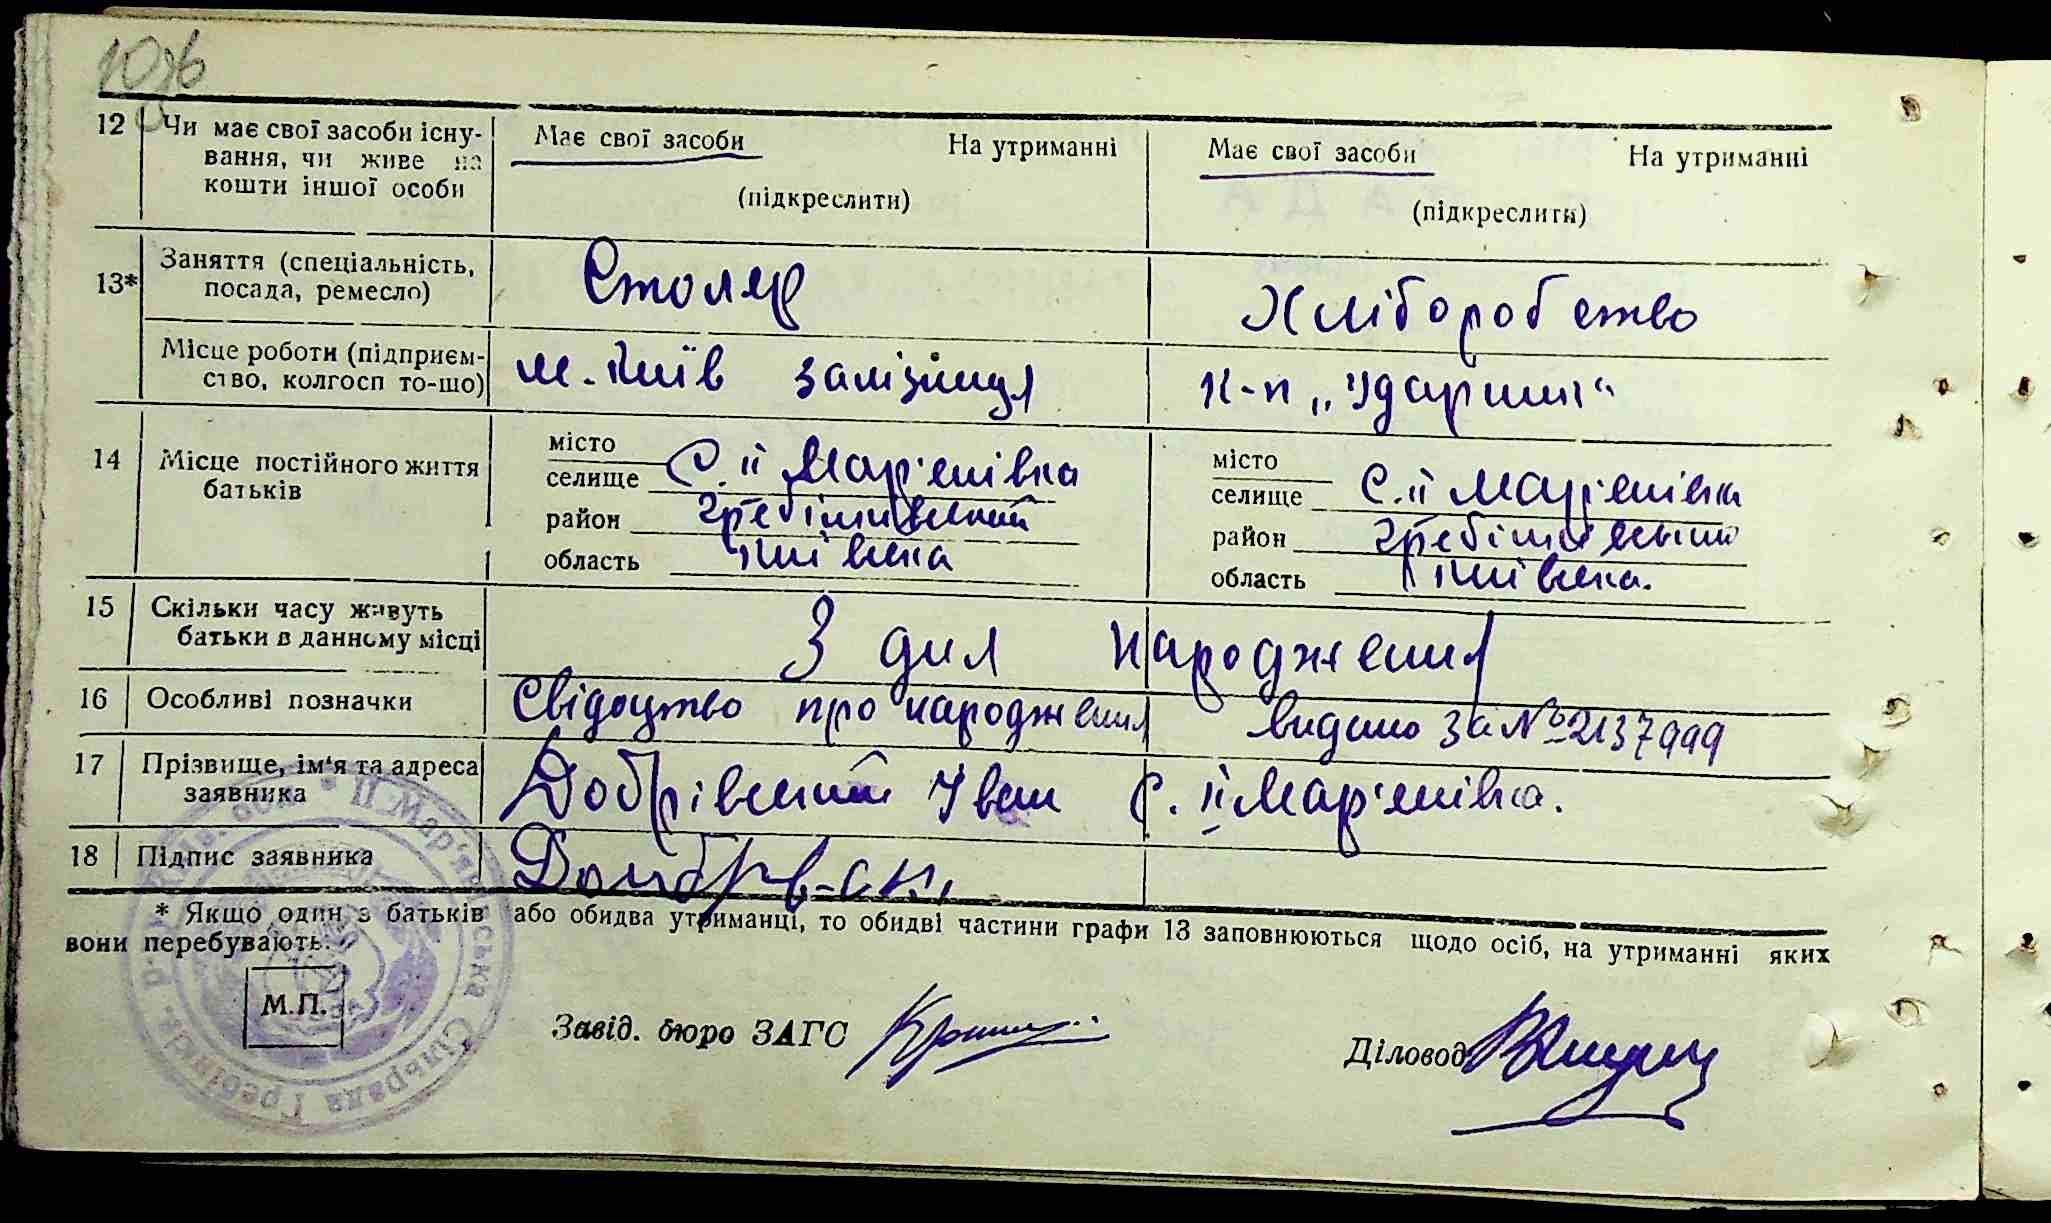 12 Чи має свої засоби існу- Має свої засоби На утриманні Має свої засоби На утриманні
вання, чи живе на
кошти іншої особи (підкреслити) (підкреслити)
13* Заняття (спеціальність, Столяр Хліборобство
посада, ремесло)
Місце роботи (підприєм- м. Київ залізниця к-п „Ударник“
ство, колгосп то-що)
14 Місце постійного життя місто с. ІІ Мар'янівка місто с. ІІ Мар'янівка
батьків селище селище
район Гребінківський район Гребінківський
область Київська область Київська.
15 Скільки часу живуть З дня народження
батьки в данному місці
16 Особливі позначки Свідоцтво про народження видано за № 2137999
17 Прізвище, ім'я та адреса Добрівський Іван с. ІІ Мар'янівка.
заявника
18 Підпис заявника
* Якщо один з батьків або обидва утриманці, то обидві частини графи 13 заповнюються щодо осіб, на утриманні яких
вони перебувають.
М.П.
Завід. бюро ЗАГС Діловод
ІІ Мар'янівська Сільрада Гребінків.